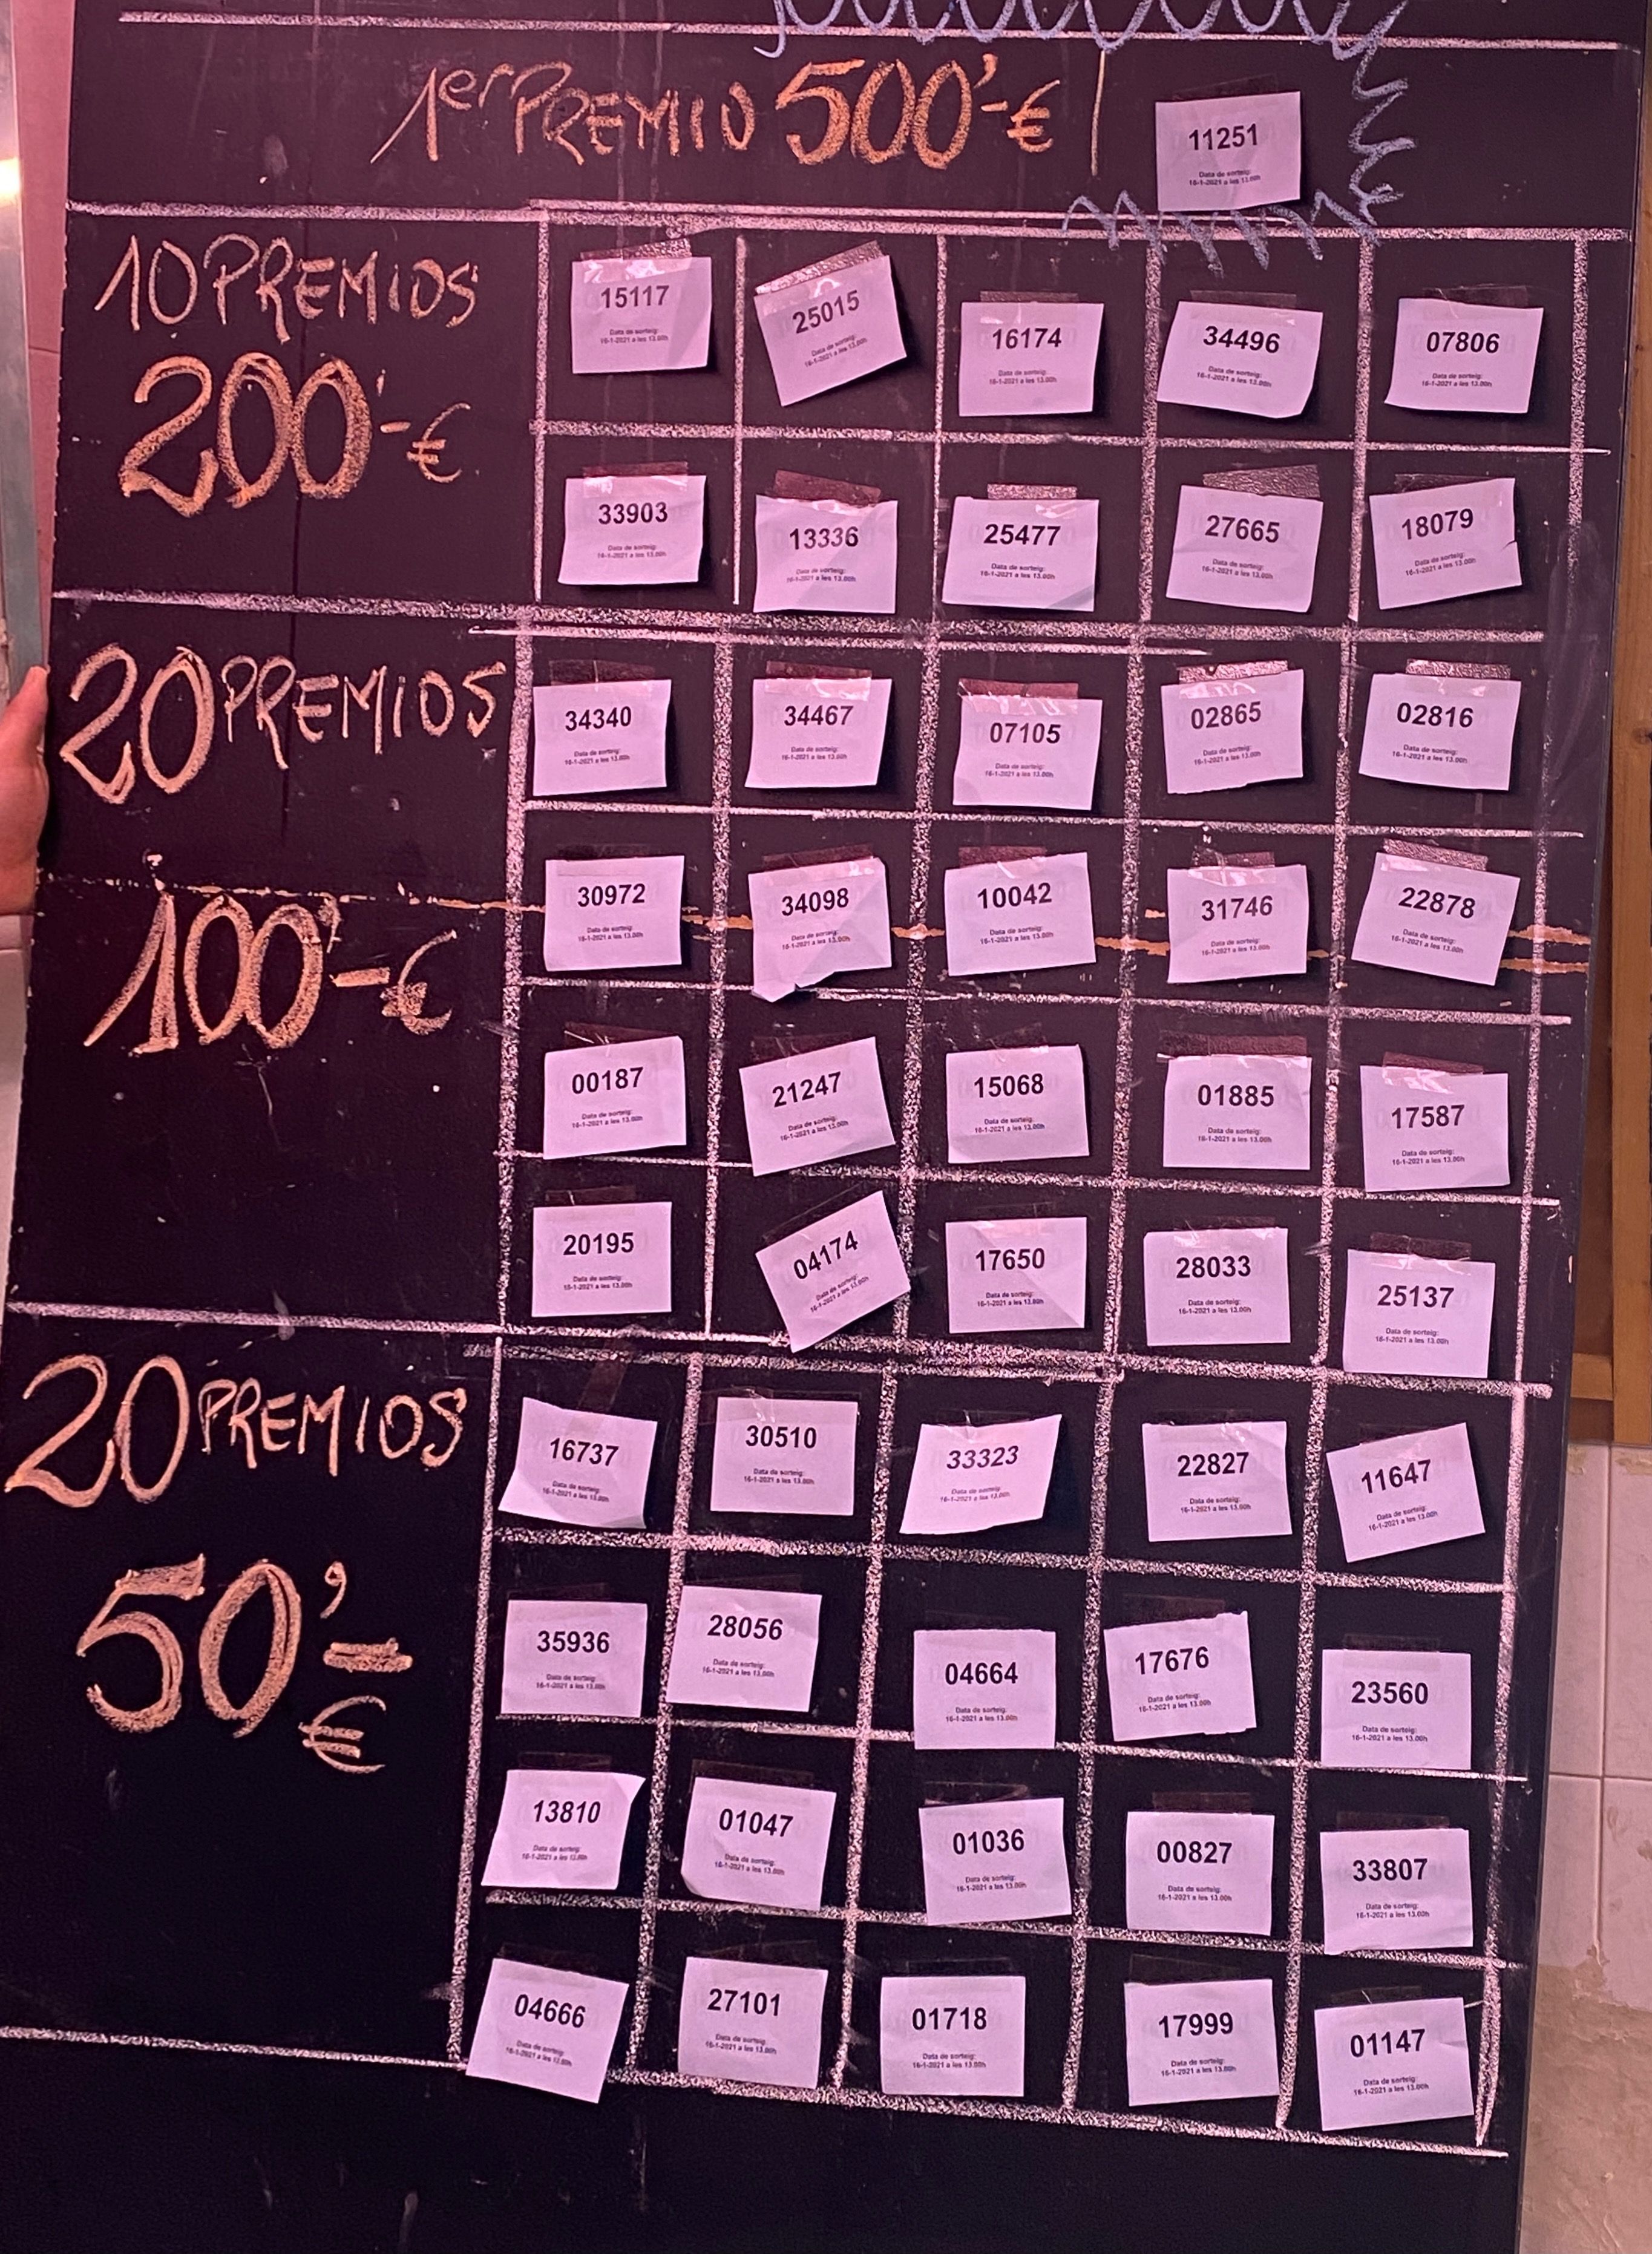 1er PREMIO 500'-€
11251
Data de sorteig:
16-1-2021 a les 13.00h
10 PREMIOS
200'-€
15117
Data de sorteig:
16-1-2021 a les 13.00h
25015
Data de sorteig:
16-1-2021 a les 13.00h
16174
Data de sorteig:
16-1-2021 a les 13.00h
34496
Data de sorteig:
16-1-2021 a les 13.00h
07806
Data de sorteig:
16-1-2021 a les 13.00h
33903
Data de sorteig:
16-1-2021 a les 13.00h
13336
Data de sorteig:
16-1-2021 a les 13.00h
25477
Data de sorteig:
16-1-2021 a les 13.00h
27665
Data de sorteig:
16-1-2021 a les 13.00h
18079
Data de sorteig:
16-1-2021 a les 13.00h
20 PREMIOS
100'-€
34340
Data de sorteig:
16-1-2021 a les 13.00h
34467
Data de sorteig:
16-1-2021 a les 13.00h
07105
Data de sorteig:
16-1-2021 a les 13.00h
02865
Data de sorteig:
16-1-2021 a les 13.00h
02816
Data de sorteig:
16-1-2021 a les 13.00h
30972
Data de sorteig:
16-1-2021 a les 13.00h
34098
Data de sorteig:
16-1-2021 a les 13.00h
10042
Data de sorteig:
16-1-2021 a les 13.00h
31746
Data de sorteig:
16-1-2021 a les 13.00h
22878
Data de sorteig:
16-1-2021 a les 13.00h
00187
Data de sorteig:
16-1-2021 a les 13.00h
21247
Data de sorteig:
16-1-2021 a les 13.00h
15068
Data de sorteig:
16-1-2021 a les 13.00h
01885
Data de sorteig:
16-1-2021 a les 13.00h
17587
Data de sorteig:
16-1-2021 a les 13.00h
20195
Data de sorteig:
16-1-2021 a les 13.00h
04174
Data de sorteig:
16-1-2021 a les 13.00h
17650
Data de sorteig:
16-1-2021 a les 13.00h
28033
Data de sorteig:
16-1-2021 a les 13.00h
25137
Data de sorteig:
16-1-2021 a les 13.00h
20 PREMIOS
50'-€
16737
Data de sorteig:
16-1-2021 a les 13.00h
30510
Data de sorteig:
16-1-2021 a les 13.00h
33323
Data de sorteig:
16-1-2021 a les 13.00h
22827
Data de sorteig:
16-1-2021 a les 13.00h
11647
Data de sorteig:
16-1-2021 a les 13.00h
35936
Data de sorteig:
16-1-2021 a les 13.00h
28056
Data de sorteig:
16-1-2021 a les 13.00h
04664
Data de sorteig:
16-1-2021 a les 13.00h
17676
Data de sorteig:
16-1-2021 a les 13.00h
23560
Data de sorteig:
16-1-2021 a les 13.00h
13810
Data de sorteig:
16-1-2021 a les 13.00h
01047
Data de sorteig:
16-1-2021 a les 13.00h
01036
Data de sorteig:
16-1-2021 a les 13.00h
00827
Data de sorteig:
16-1-2021 a les 13.00h
33807
Data de sorteig:
16-1-2021 a les 13.00h
04666
Data de sorteig:
16-1-2021 a les 13.00h
27101
Data de sorteig:
16-1-2021 a les 13.00h
01718
Data de sorteig:
16-1-2021 a les 13.00h
17999
Data de sorteig:
16-1-2021 a les 13.00h
01147
Data de sorteig:
16-1-2021 a les 13.00h